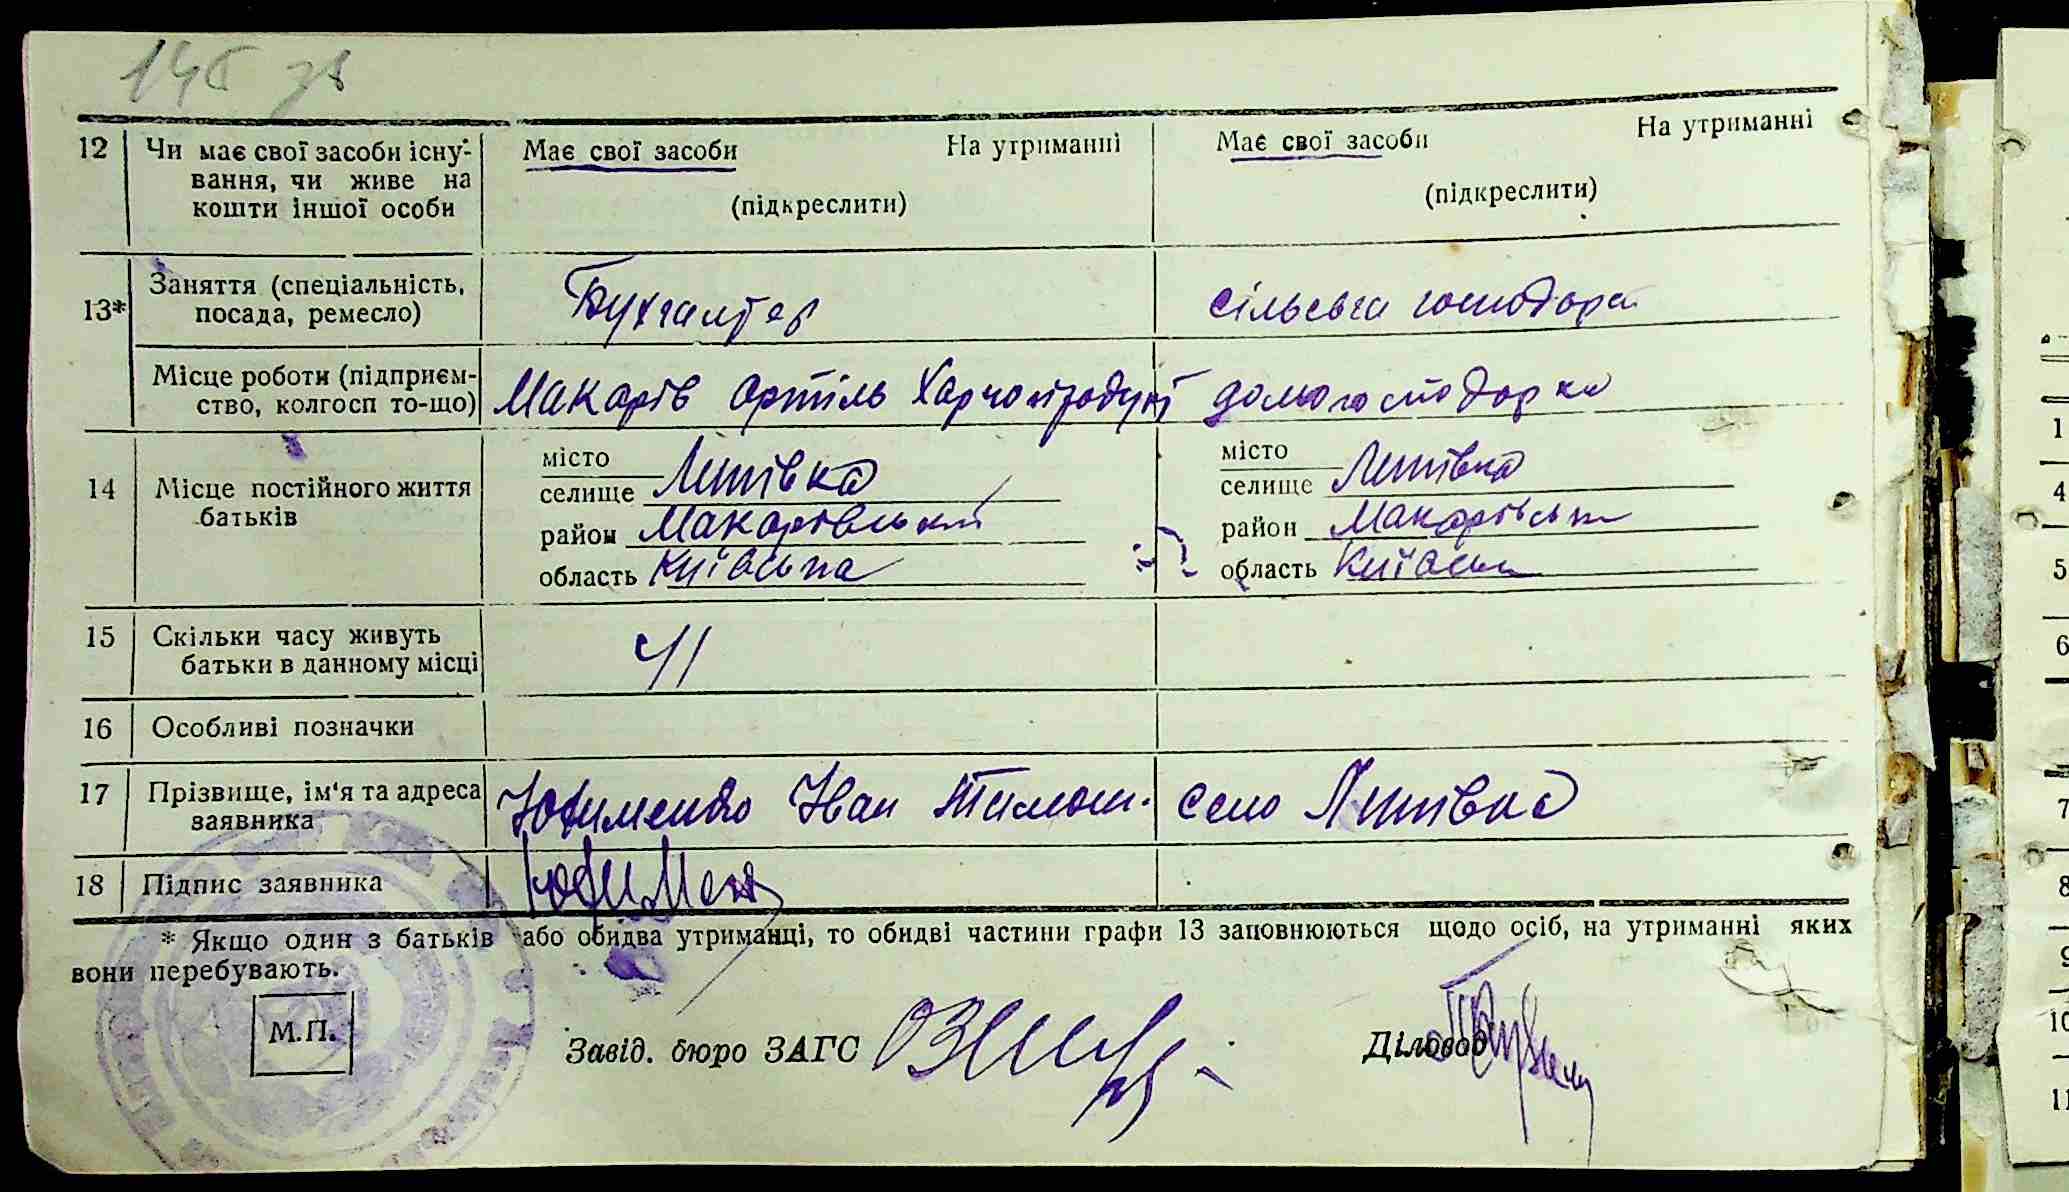 146 зв
12 Чи має свої засоби існу- Має свої засоби На утриманні Має свої засоби На утриманні
вання, чи живе на (підкреслити) (підкреслити)
кошти іншої особи
13* Заняття (спеціальність, Бухгалтер сільська господарка
посада, ремесло)
Місце роботи (підприєм- Макарів артіль Харчопродукт домогосподарка
ство, колгосп то-що)
14 Місце постійного життя місто місто
батьків селище Липівка селище Липівка
район Макарівський район Макарівськи
область Київська область Київськ
15 Скільки часу живуть
батьки в данному місці
16 Особливі позначки
17 Прізвище, ім'я та адреса Юфименко Іван Тимош. село Липівка
заявника
18 Підпис заявника Юфимен
* Якщо один з батьків або обидва утриманці, то обидві частини графи 13 заповнюються щодо осіб, на утриманні яких
вони перебувають.
М.П. Завід. бюро ЗАГС Діловод
1
4
5
6
7
8
9
10
11